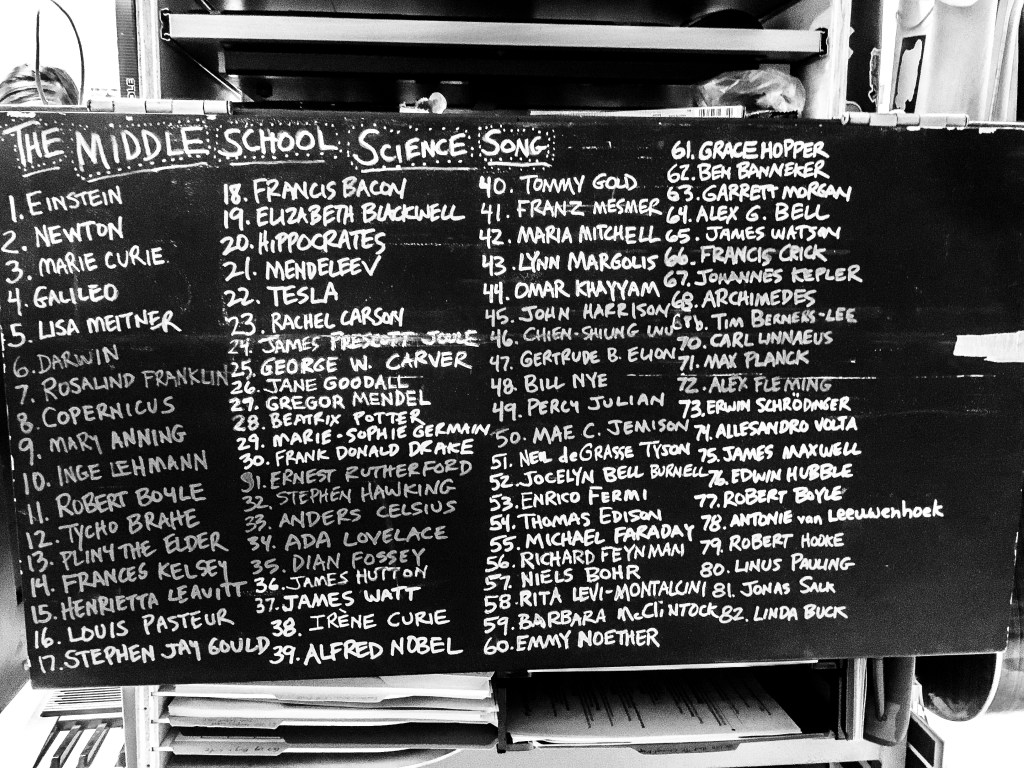 THE MIDDLE SCHOOL SCIENCE SONG
1. EINSTEIN
2. NEWTON
3. MARIE CURIE
4. GALILEO
5. LISA MEITNER
6. DARWIN
7. ROSALIND FRANKLIN
8. COPERNICUS
9. MARY ANNING
10. INGE LEHMANN
11. ROBERT BOYLE
12. TYCHO BRAHE
13. PLINY THE ELDER
14. FRANCES KELSEY
15. HENRIETTA LEAVITT
16. LOUIS PASTEUR
17. STEPHEN JAY GOULD
18. FRANCIS BACON
19. ELIZABETH BLACKWELL
20. HIPPOCRATES
21. MENDELEEV
22. TESLA
23. RACHEL CARSON
24. JAMES PRESCOTT JOULE
25. GEORGE W. CARVER
26. JANE GOODALL
27. GREGOR MENDEL
28. BEATRIX POTTER
29. MARIE-SOPHIE GERMAIN
30. FRANK DONALD DRAKE
31. ERNEST RUTHERFORD
32. STEPHEN HAWKING
33. ANDERS CELSIUS
34. ADA LOVELACE
35. DIAN FOSSEY
36. JAMES HUTTON
37. JAMES WATT
38. IRÈNE CURIE
39. ALFRED NOBEL
40. TOMMY GOLD
41. FRANZ MESMER
42. MARIA MITCHELL
43. LYNN MARGOLIS
44. OMAR KHAYYAM
45. JOHN HARRISON
46. CHIEN-SHIUNG WU
47. GERTRUDE B. ELION
48. BILL NYE
49. PERCY JULIAN
50. MAE C. JEMISON
51. NEIL deGRASSE TYSON
52. JOCELYN BELL BURNELL
53. ENRICO FERMI
54. THOMAS EDISON
55. MICHAEL FARADAY
56. RICHARD FEYNMAN
57. NIELS BOHR
58. RITA LEVI-MONTALCINI
59. BARBARA McCLINTOCK
60. EMMY NOETHER
61. GRACE HOPPER
62. BEN BANNEKER
63. GARRETT MORGAN
64. ALEX G. BELL
65. JAMES WATSON
66. FRANCIS CRICK
67. JOHANNES KEPLER
68. ARCHIMEDES
TIM BERNERS-LEE
70. CARL LINNAEUS
71. MAX PLANCK
72. ALEX FLEMING
73. ERWIN SCHRÖDINGER
74. ALLESANDRO VOLTA
75. JAMES MAXWELL
76. EDWIN HUBBLE
77. ROBERT BOYLE
78. ANTONIE van Leeuwenhoek
79. ROBERT HOOKE
80. LINUS PAULING
81. JONAS SALK
82. LINDA BUCK